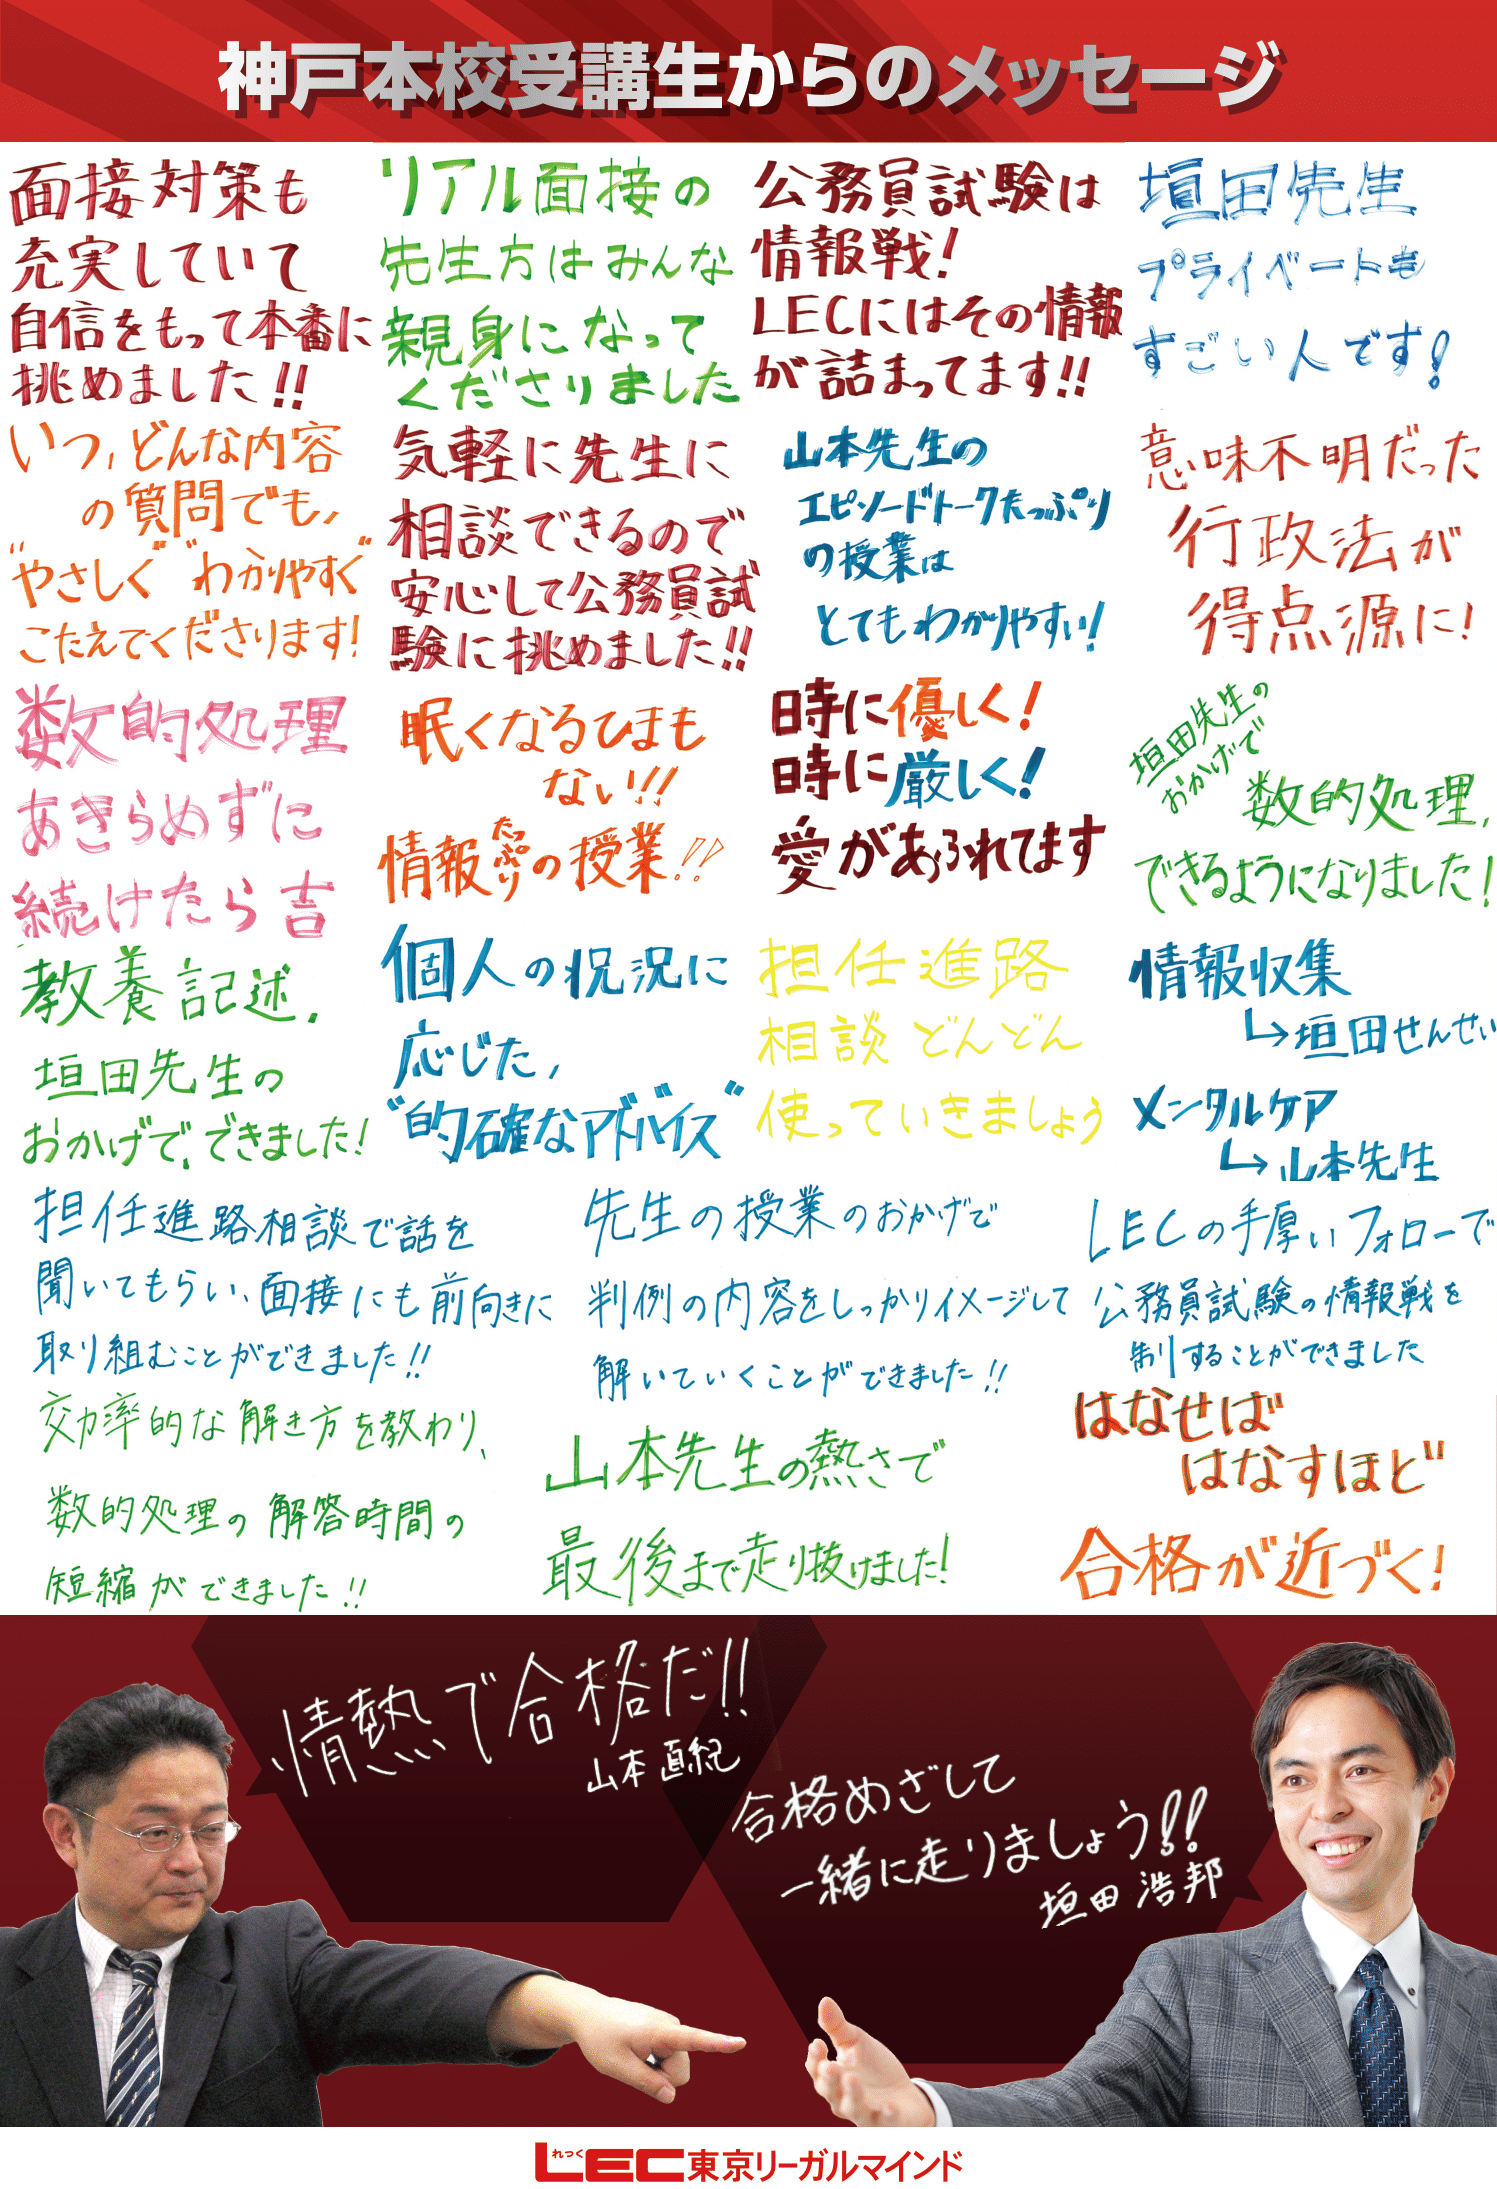 神戸本校受講生からのメッセージ
面接対策も
充実していて
自信をもって本番に
挑めました!!
リアル面接の
先生方はみんな
親身になって
くださりました
公務員試験は
情報戦!
LECにはその情報
が詰まってます!!
垣田先生
プライベートも
すごい人です!
いつ,どんな内容
の質問でも,
"やさしく" "わかりやすく"
こたえてくださります!
気軽に先生に
相談できるので
安心して公務員試
験に挑めました!!
山本先生の
エピソードトークたっぷり
の授業は
とてもわかりやすい!
意味不明だった
行政法が
得点源に!
数的処理
あきらめずに
続けたら吉
眠くなるひまも
ない!!
情報たっぷりの授業!!
時に優しく!
時に厳しく!
愛があふれてます
垣田先生の
おかげで
数的処理,
できるようになりました!
教養記述,
垣田先生の
おかげで,できました!
個人の状況に
応じた,
"的確なアドバイス"
担任進路
相談どんどん
使っていきましょう
情報収集
↳垣田せんせい
メンタルケア
↳山本先生
担任進路相談で話を
聞いてもらい、面接にも前向きに
取り組むことができました!!
先生の授業のおかげで
判例の内容をしっかりイメージして
解いていくことができました!!
LECの手厚いフォローで
公務員試験の情報戦を
制することができました
効率的な解き方を教わり、
数的処理の解答時間の
短縮ができました!!
山本先生の熱さで
最後まで走り抜けました!
はなせば
はなすほど
合格が近づく!
情熱で合格だ!!
山本直紀
合格めざして
一緒に走りましょう!!
垣田浩邦
れっく
LEC東京リーガルマインド